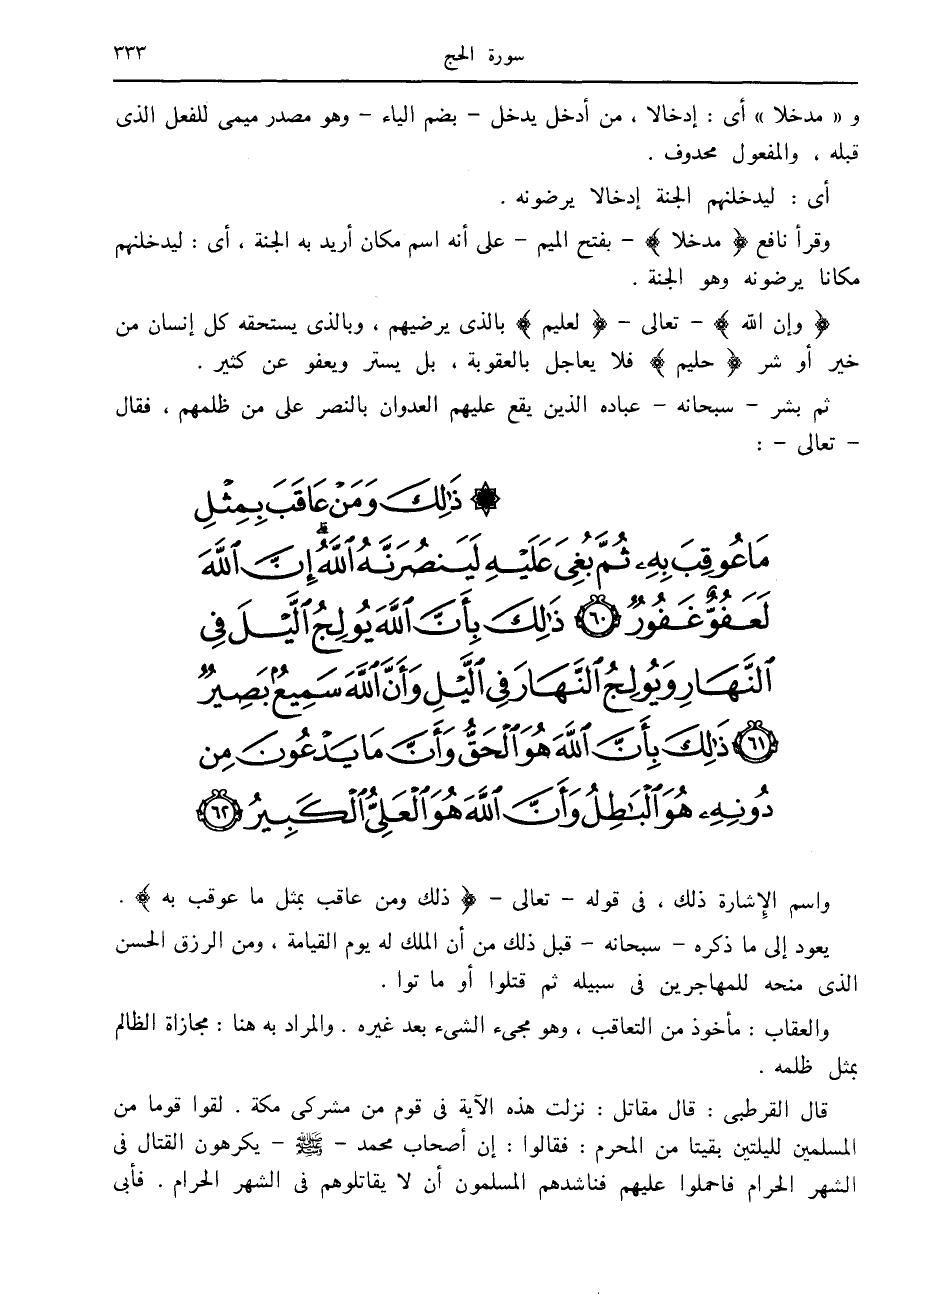 سورة الحج ٣٣٣
و « مدخلا » أى : إدخالا ، من أدخل يدخل – بضم الياء – وهو مصدر ميمى للفعل الذى
قبله ، والمفعول محدوف .
أى : ليدخلنهم الجنة إدخالا يرضونه .
وقرأ نافع ﴿ مدخلا ﴾ – بفتح الميم – على أنه اسم مكان أريد به الجنة ، أى : ليدخلنهم
مكانا يرضونه وهو الجنة .
﴿ وإن الله ﴾ – تعالى – ﴿ لعليم ﴾ بالذى يرضيهم ، وبالذى يستحقه كل إنسان من
خير أو شر ﴿ حليم ﴾ فلا يعاجل بالعقوبة ، بل يستر ويعفو عن كثير .
ثم بشر – سبحانه – عباده الذين يقع عليهم العدوان بالنصر على من ظلمهم ، فقال
– تعالى – :
۞ ذَٰلِكَ وَمَنْ عَاقَبَ بِمِثْلِ
مَا عُوقِبَ بِهِۦ ثُمَّ بُغِىَ عَلَيْهِ لَيَنصُرَنَّهُ ٱللَّهُ ۗ إِنَّ ٱللَّهَ
لَعَفُوٌّ غَفُورٌ ﴿٦٠﴾ ذَٰلِكَ بِأَنَّ ٱللَّهَ يُولِجُ ٱلَّيْلَ فِى
ٱلنَّهَارِ وَيُولِجُ ٱلنَّهَارَ فِى ٱلَّيْلِ وَأَنَّ ٱللَّهَ سَمِيعٌۢ بَصِيرٌ
﴿٦١﴾ ذَٰلِكَ بِأَنَّ ٱللَّهَ هُوَ ٱلْحَقُّ وَأَنَّ مَا يَدْعُونَ مِن
دُونِهِۦ هُوَ ٱلْبَٰطِلُ وَأَنَّ ٱللَّهَ هُوَ ٱلْعَلِىُّ ٱلْكَبِيرُ ﴿٦٢﴾
واسم الإِشارة ذلك ، فى قوله – تعالى – ﴿ ذلك ومن عاقب بمثل ما عوقب به ﴾ .
يعود إلى ما ذكره – سبحانه – قبل ذلك من أن الملك له يوم القيامة ، ومن الرزق الحسن
الذى منحه للمهاجرين فى سبيله ثم قتلوا أو ما توا .
والعقاب : مأخوذ من التعاقب ، وهو مجىء الشىء بعد غيره . والمراد به هنا : مجازاة الظالم
بمثل ظلمه .
قال القرطبى : قال مقاتل : نزلت هذه الآية فى قوم من مشركى مكة . لقوا قوما من
المسلمين لليلتين بقيتا من المحرم : فقالوا : إن أصحاب محمد – ﷺ – يكرهون القتال فى
الشهر الحرام فاحملوا عليهم فناشدهم المسلمون أن لا يقاتلوهم فى الشهر الحرام . فأبى